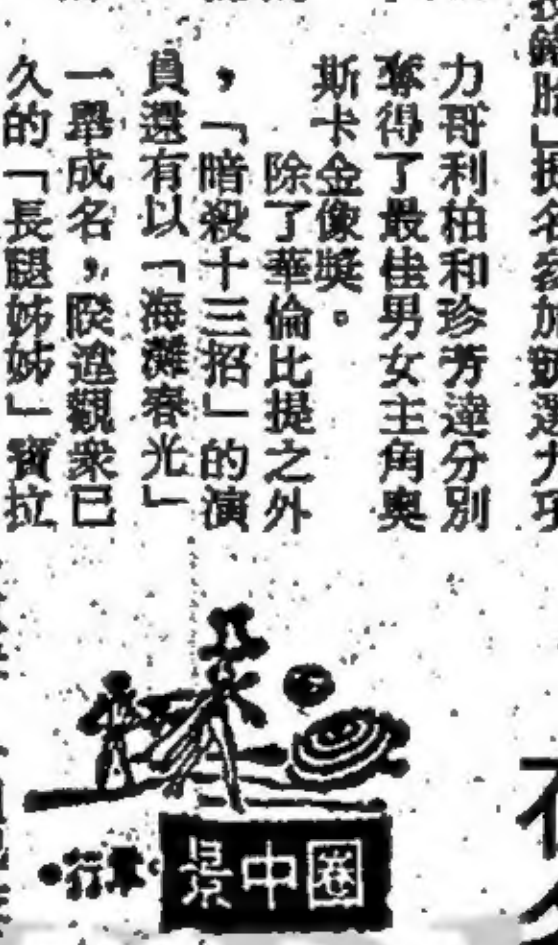 力哥利柏和珍芳達分別
奪得了最佳男女主角奧
斯卡金像獎。
除了華倫比提之外
，「暗殺十三招」的演
員還有以「海灘春光」
一舉成名，睽違觀眾已
久的「長腿姊姊」寶拉
圈中景